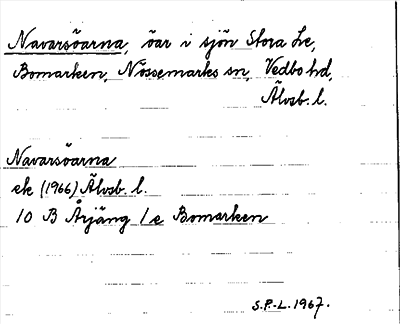 Navarsöarna, öar i sjön Stora Le,
Bomarken, Nössemarks sn, Vedbo hd,
Älvsb. l.
Navarsöarna
ek (1966) Älvsb. l.
10 B Årjäng 1 e Bomarken
S.P.-L. 1967.